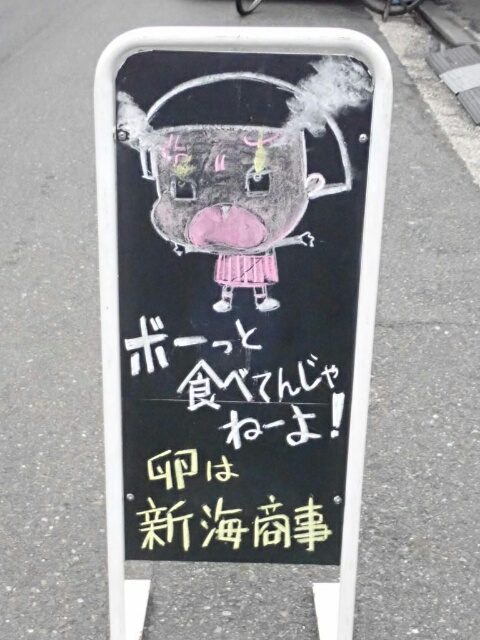 ボーっと
食べてんじゃ
ねーよ!
卵は
新海商事